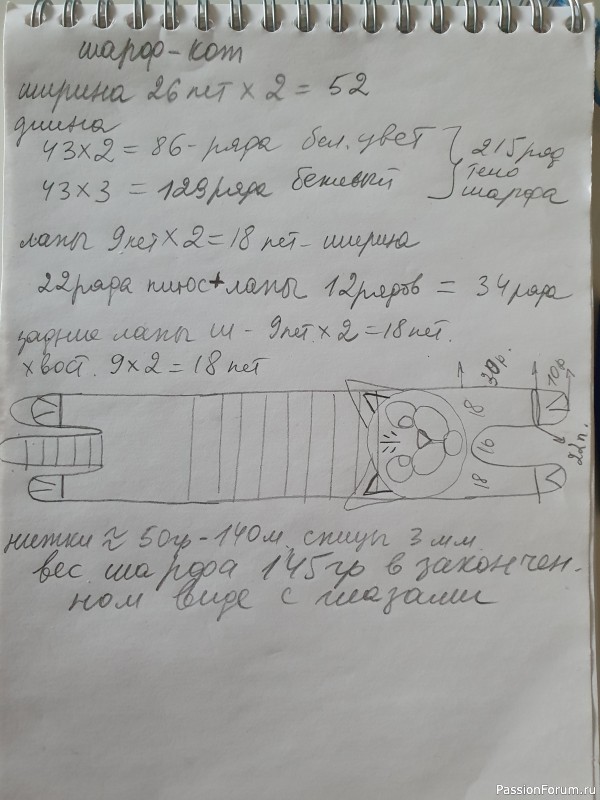 шарф-кот
ширина 26 пет × 2 = 52
длина
43×2 = 86 - ряда бел. цвет } 215 ряд
43×3 = 129 ряда бежевый } тело шарфа
лапы 9 пет × 2 = 18 пет - ширина
22 ряда плюс + лапы 12 рядов = 34 ряда
задние лапы ш - 9 пет. × 2 = 18 пет.
хвост. 9×2 = 18 пет
30р. 10р
18
16
22п.
18
нитки ≈ 50гр - 140м, спицы 3 мм
вес шарфа 145гр в закончен-
ном виде с глазами
PassionForum.ru